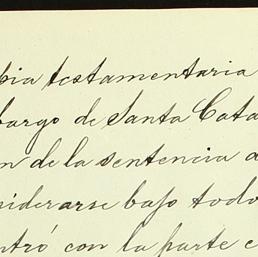 bia testamentaria
bargo de Santa Cata
n de la sentencia a
siderarse bajo todo
ntró con la parte e